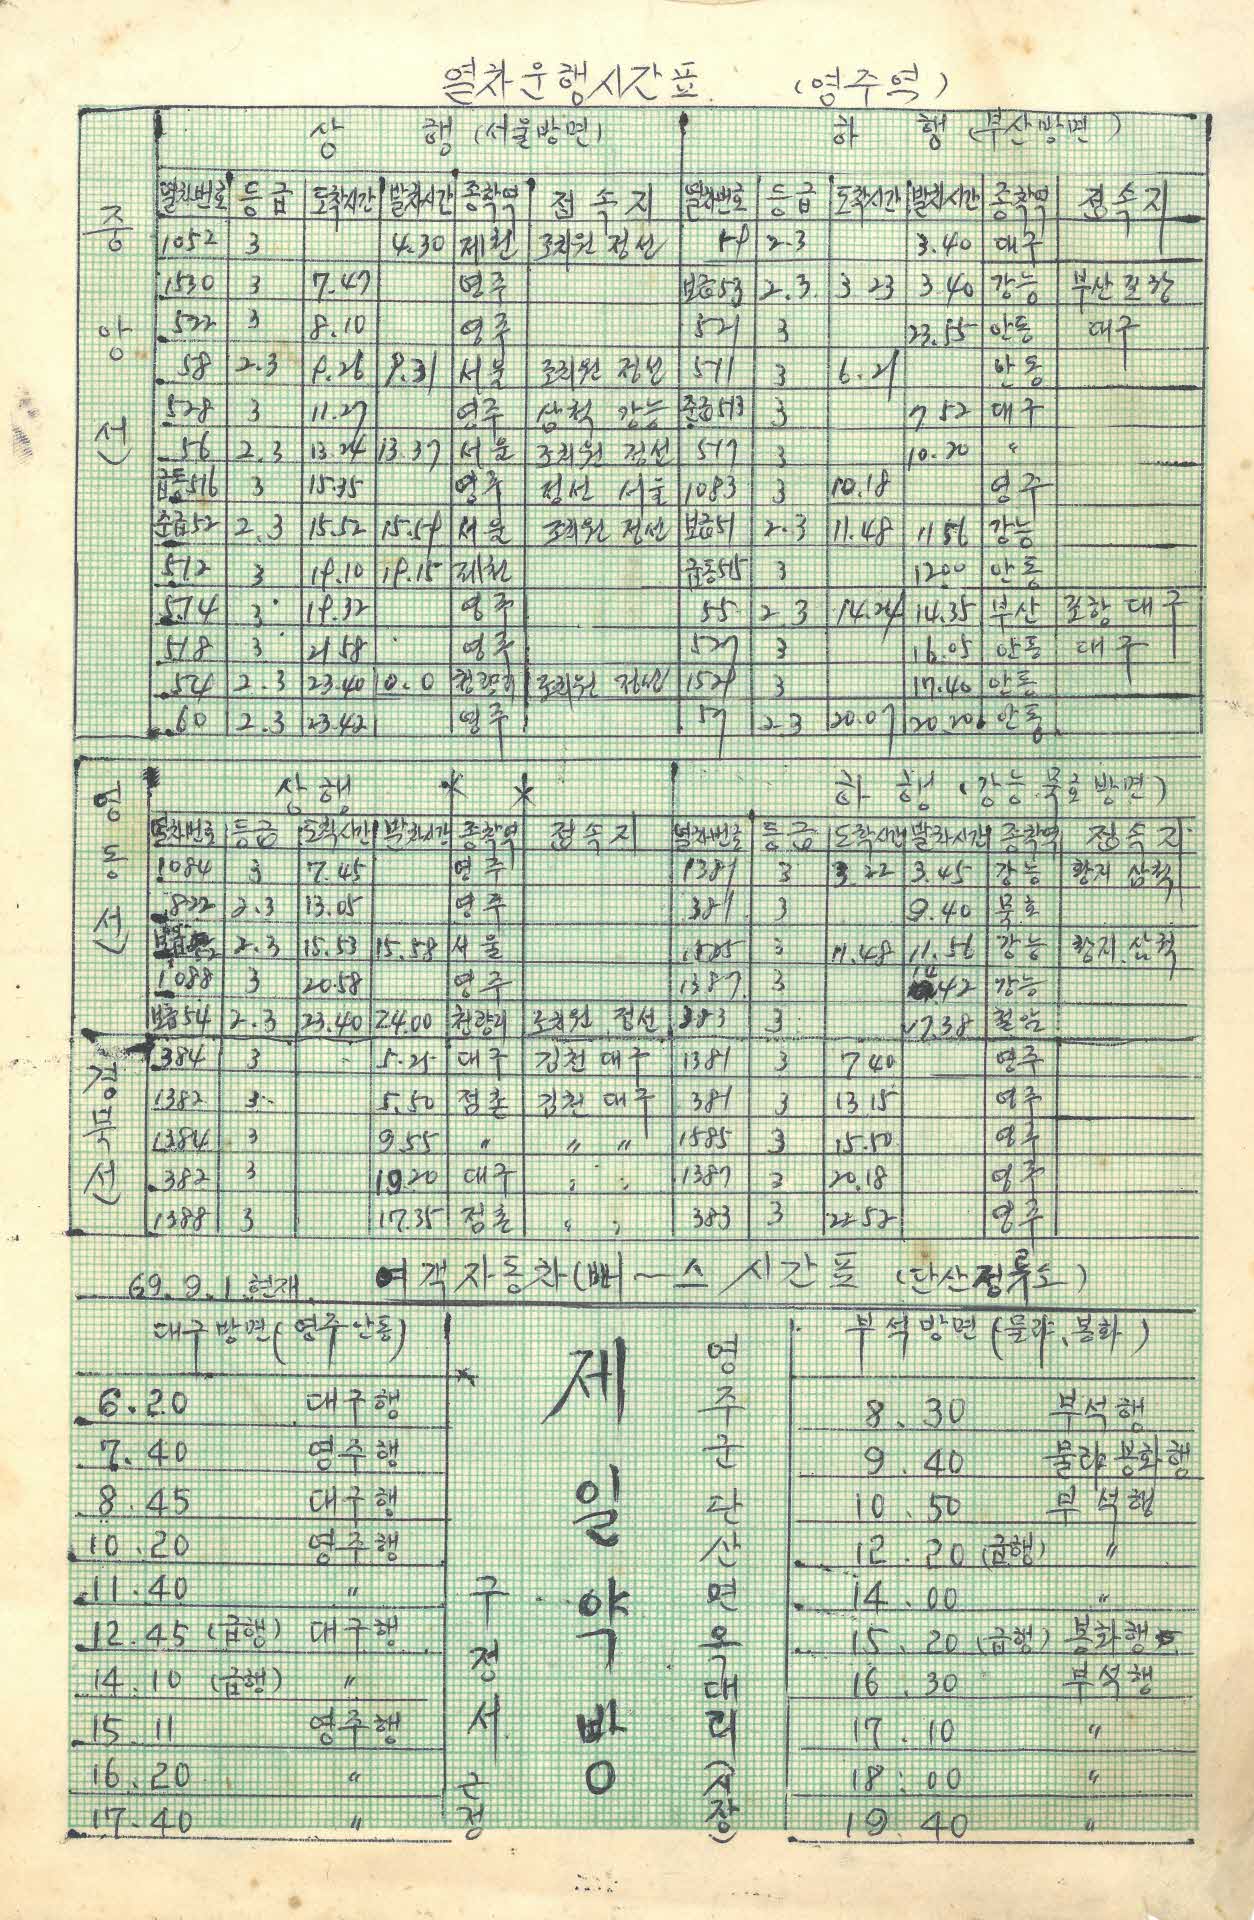 열차운행시간표 (영주역)
중앙선
상 행 (서울방면) 하 행 (부산방면)
열차번호 등급 도착시간 발차시간 종착역 접속지 열차번호 등급 도착시간 발차시간 종착역 접속지
1052 3 4.30 제천 조치원 정선 2.3 3.40 대구
1530 3 7.47 영주 보급53 2.3 3 23 3 40 강능 부산 포항
522 3 8.10 영주 521 3 23.55 안동 대구
58 2.3 9.26 9.31 서울 조치원 정선 511 3 6.21 안동
528 3 11.27 영주 삼척 강능 준급513 3 7 52 대구
56 2.3 13.24 13.37 서울 조치원 정선 517 3 10.20 〃
급동516 3 15.35 영주 정선 서울 1083 3 10.18 영주
준급52 2.3 15.52 15.59 서울 조치원 정선 보급51 2.3 11.48 11 56 강능
512 3 19.10 19.15 제천 급동515 3 1200 안동
574 3 19.32 영주 55 2.3 14.24 14.35 부산 포항 대구
518 3 21 58 영주 527 3 16.05 안동 대구
54 2.3 23.40 0.0 청량리 조치원 정선 1529 3 17.40 안동
60 2.3 23.42 영주 57 2.3 20.07 20.20 안동
영동선
상행 하 행 (강능.묵호 방면)
열차번호 등급 도착시간 발차시간 종착역 접속지 열차번호 등급 도착시간 발차시간 종착역 접속지
1084 3 7.45 영주 1381 3 3.22 3.45 강능 황지 삼척
822 2.3 13.05 영주 381 3 9.40 묵호
2.3 15.53 15.58 서울 3 11.48 11.56 강능 황지.삼척
1088 3 20.58 영주 1387 3 14 42 강능
보급54 2.3 23.40 24.00 청량리 조치원 정선 383 3 17.38 철암
경북선
384 3 5.25 대구 김천 대구 1381 3 7 40 영주
1382 3 5.50 점촌 김천 대구 381 3 13 15 영주
1384 3 9.55 〃 〃 〃 1585 3 15.50 영주
382 3 10.20 대구 〃 〃 1387 3 20.18 영주
1388 3 17.35 점촌 〃 〃 383 3 22 52 영주
69.9.1.현재 여객자동차(뻐ー스 시간표 (단산정류소)
대구방면(영주안동)
6.20 대구행
7.40 영주행
8.45 대구행
10.20 영주행
11.40 〃
12.45 (급행) 대구행
14.10 (급행) 〃
15.11 영주행
16.20 〃
17.40 〃
구정서 근정
제일약방
영주군 단산면 옥대리 (시장)
부석방면 (물야, 봉화)
8.30 부석행
9.40 물야 봉화행
10.50 부석행
12.20 (급행) 〃
14.00 〃
15.20 (급행) 봉화행
16.30 부석행
17.10 〃
18:00 〃
19.40 〃